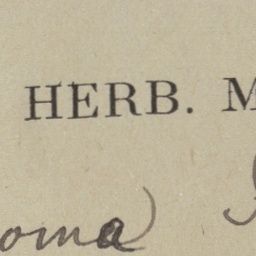 HERB. M
oma